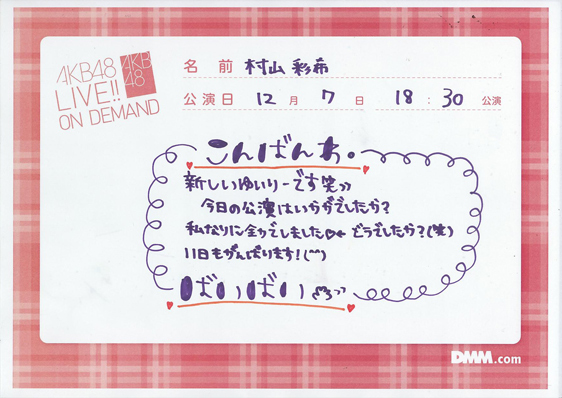 AKB48
LIVE!!
ON DEMAND
AKB
48
名 前 村山 彩希
公演日 12 月 7 日 18 : 30 公演
こんばんわ。
新しいゆいりーです笑››
今日の公演はいかがでしたか?
私なりに全力でしました♡← どうでしたか?(笑)
11日もがんばります!(^^)
ばいばい ››
DMM.com